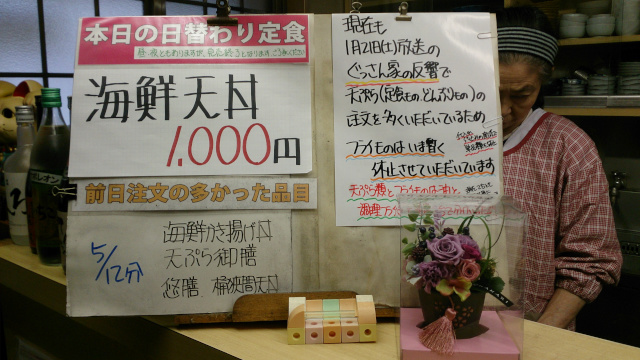 本日の日替わり定食
昼・夜ともありますが、売れ終うとなります。ごめんください
海鮮天丼
1,000円
前日注文の多かった品目
5/12分
海鮮かき揚げ丼
天ぷら御膳
悠膳、桶狭間天丼
現在も
1月21日(土)放送の
ぐっさん家の反響で
天ぷら(定食もの、どんぶりもの)の
注文を多くいただいているため
フライものはいま暫く
休止させていただいています
天ぷら類とフライものはなんと
調理